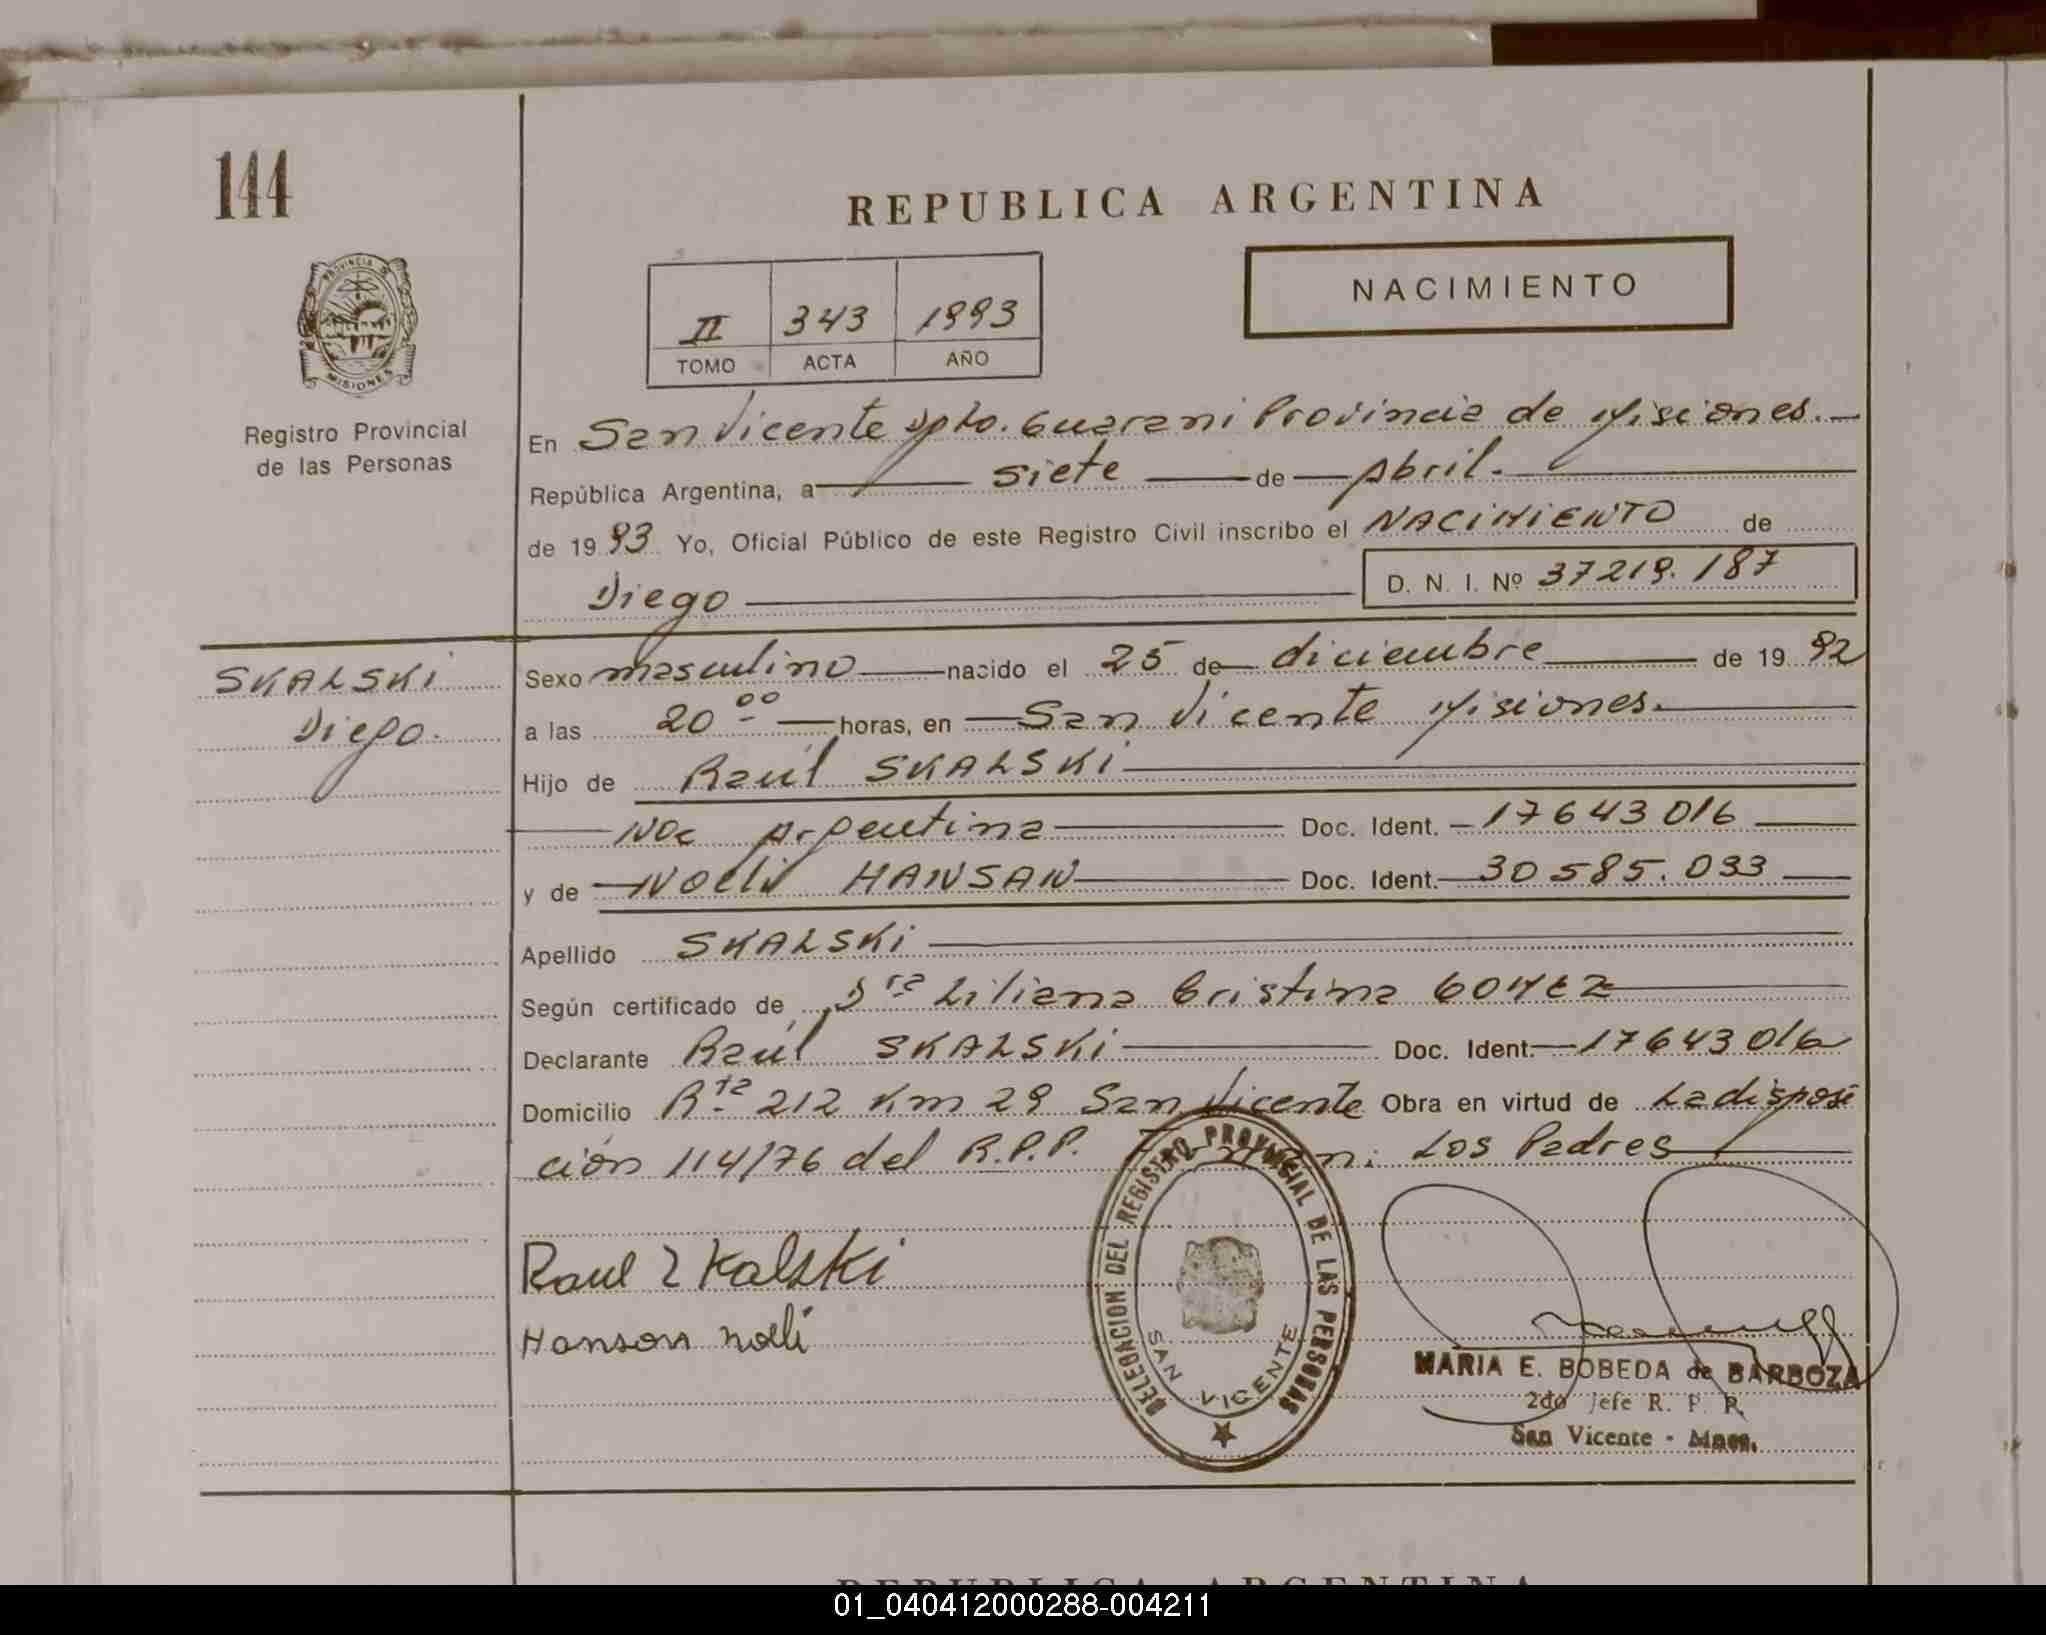 144
REPUBLICA ARGENTINA
PROVINCIA DE MISIONES
II 343 1993
TOMO ACTA AÑO
NACIMIENTO
Registro Provincial
de las Personas
En San Vicente Dpto. Guarani Provincia de Misiones.
República Argentina, a siete de Abril.
de 1993 Yo, Oficial Público de este Registro Civil inscribo el NACIMIENTO de
Diego D. N. I. Nº 37219.187
SKALSKI
Diego.
Sexo masculino nacido el 25 de diciembre de 1992
a las 20 00 horas, en San Vicente Misiones.
Hijo de Raúl SKALSKI
Nac Argentina Doc. Ident. 17643016
y de Noeli HANSAN Doc. Ident. 30585.033
Apellido SKALSKI
Según certificado de Sra Liliana Cristina GOMEZ
Declarante Raúl SKALSKI Doc. Ident. 17643016
Domicilio Rta 212 Km 29 San Vicente Obra en virtud de La disposi
ción 114/76 del R.P.P. Firman: Los Padres
Raul Skalski
Hanson noeli
DELEGACION DEL REGISTRO PROVINCIAL DE LAS PERSONAS
SAN VICENTE
MARIA E. BOBEDA de BARBOZA
2do Jefe R. P. P.
San Vicente - Mnes.
REPUBLICA ARGENTINA
01_040412000288-004211